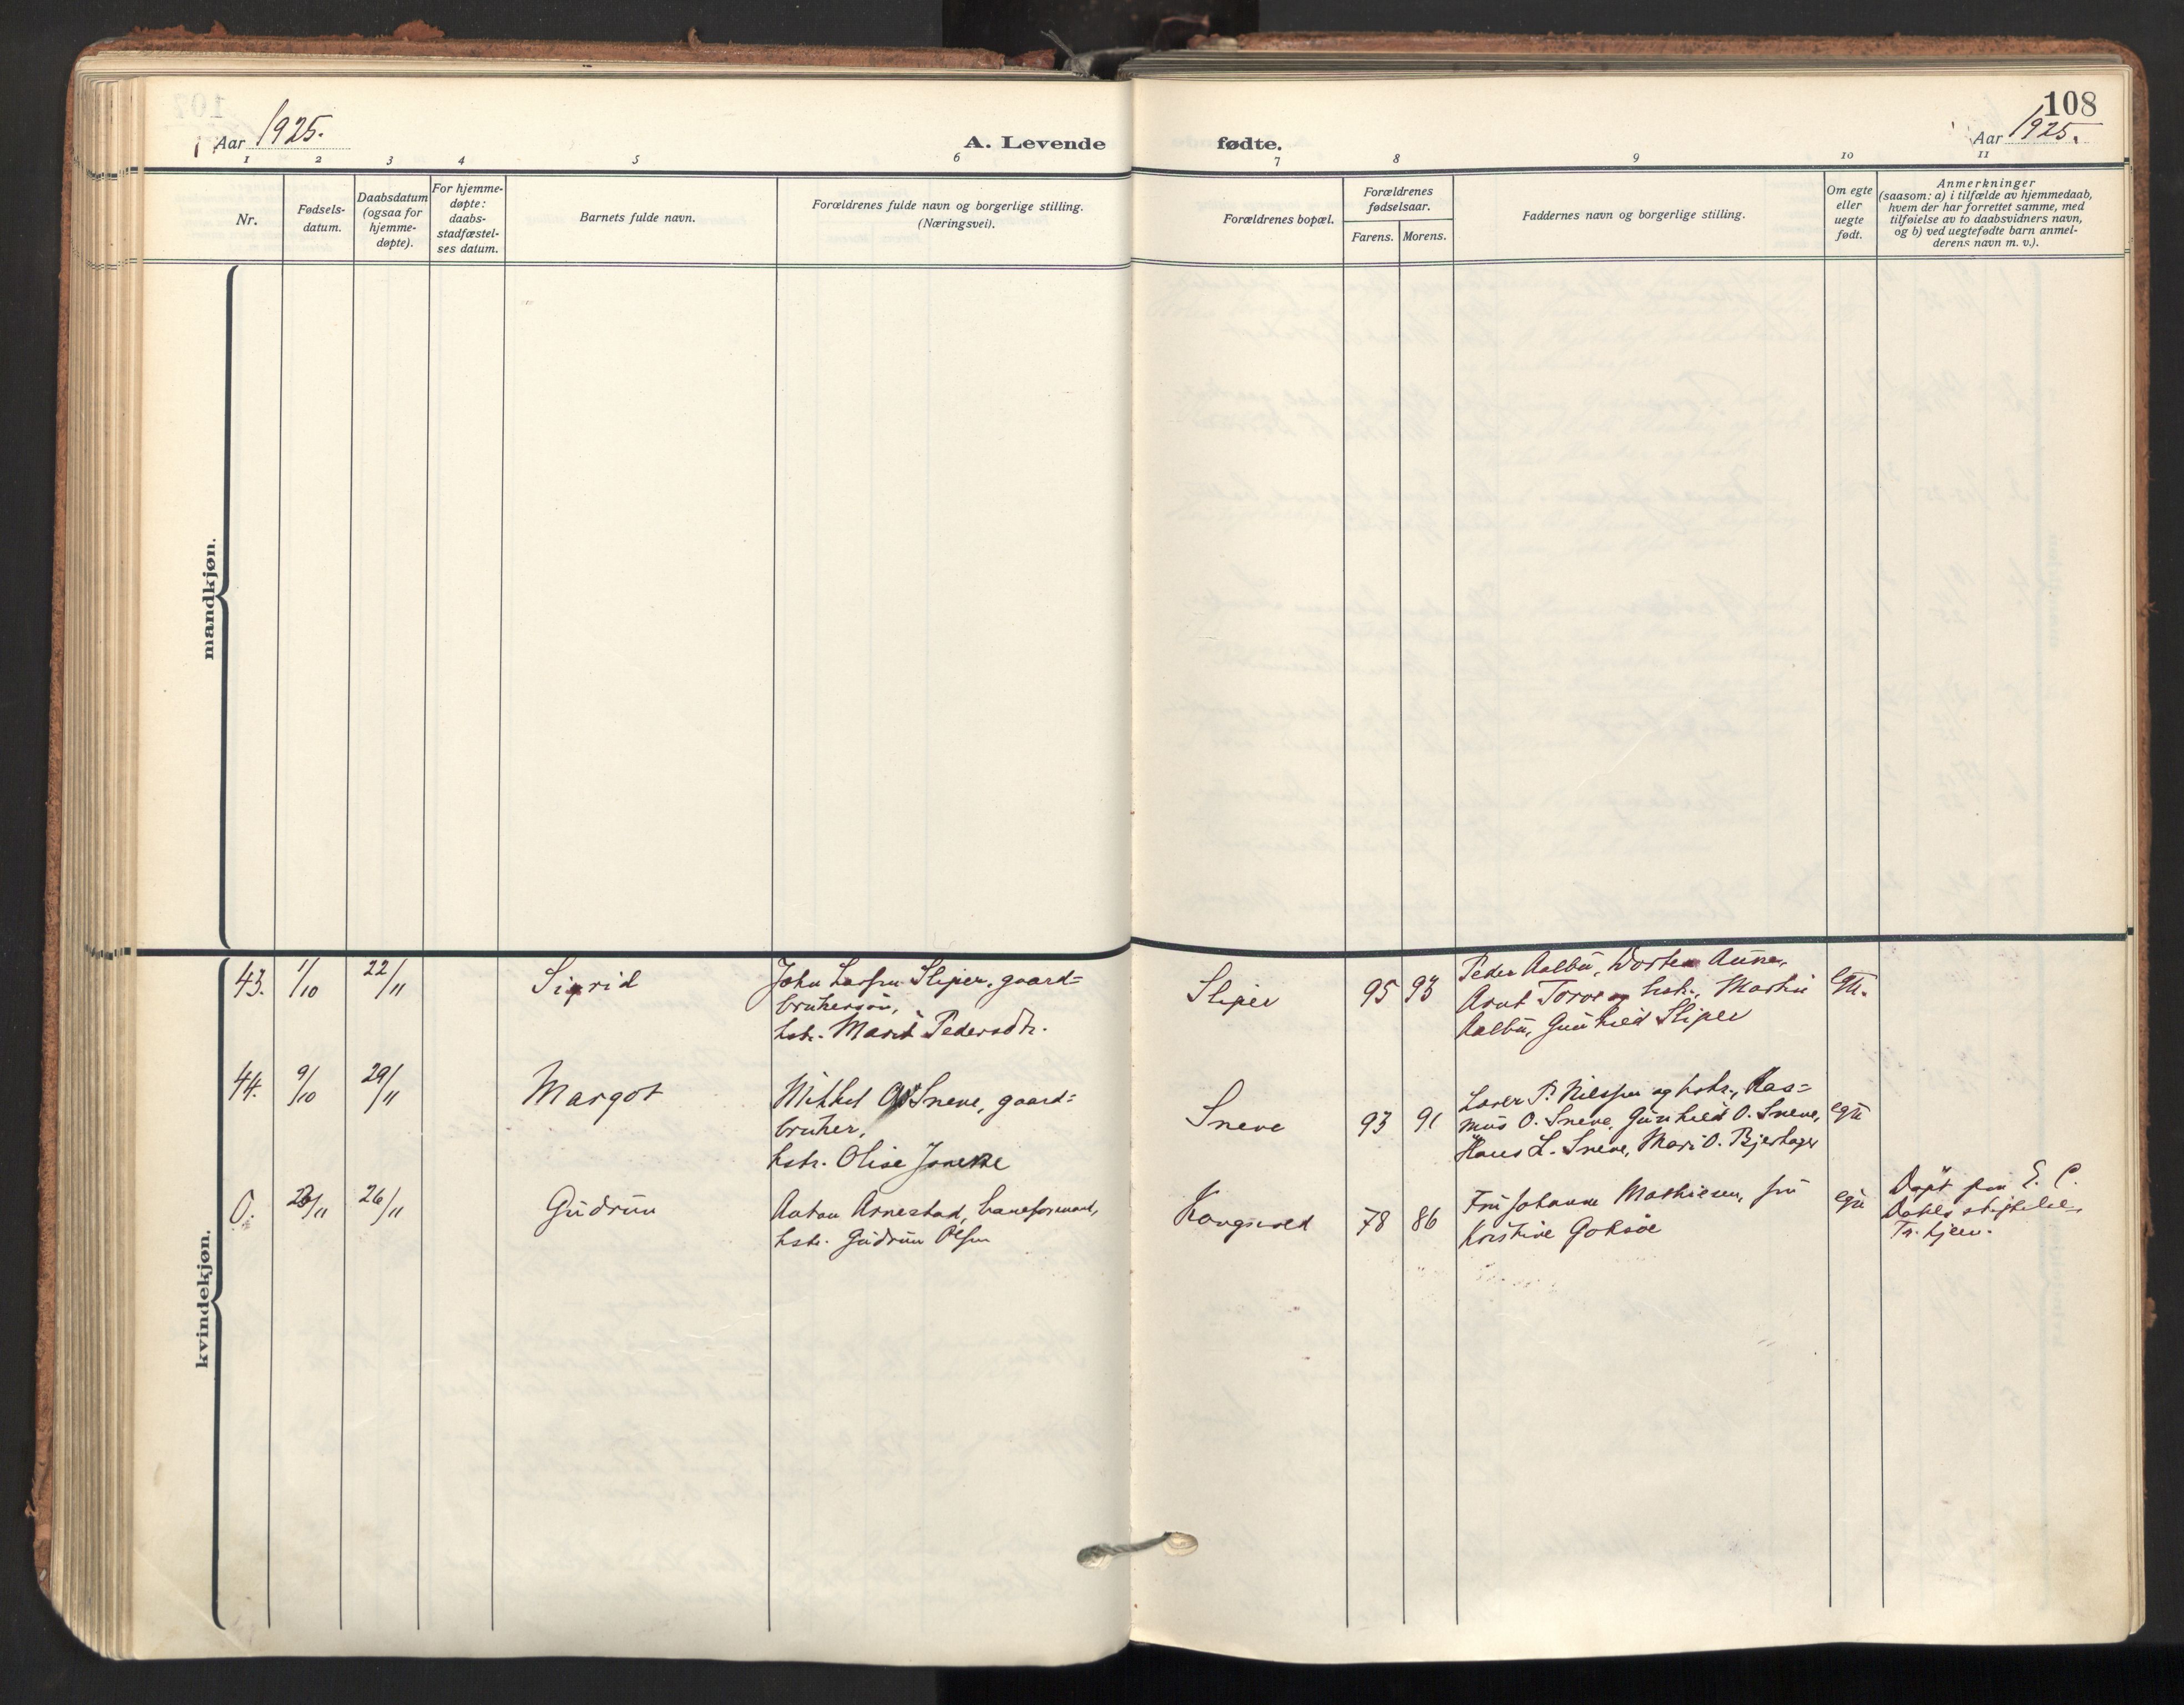 108
Aar 1925.
A. Levende fødte.
Aar 1925.
1 2 3 4 5 6 7 8 9 10 11
Nr.
Fødsels-
datum.
Daabsdatum
(ogsaa for
hjemme-
døpte).
For hjemme-
døpte:
daabs-
stadfæstel-
ses datum.
Barnets fulde navn.
Forældrenes fulde navn og borgerlige stilling.
(Næringsvei).
Forældrenes bopæl.
Forældrenes
fødselsaar.
Farens. Morens.
Faddernes navn og borgerlige stilling.
Om egte
eller
uegte
født.
Anmerkninger
(saasom: a) i tilfælde av hjemmedaab,
hvem der har forrettet samme, med
tilføielse av to daabsvidners navn,
og b) ved uegtefødte barn anmel-
derens navn m. v.).
mandkjøn.
kvindekjøn.
43. 1/10 22/11 Sigrid
John Larsen Sliper, gaard-
brukersøn,
hstr. Marit Pedersdtr.
Sliper 95 93
Peder Aalbu, Aune,
Arnt Torve og hstr., Martin
Aalbu, Gunhild Sliper
egte.
44. 9/10 29/11 Margot
Mikkel O. Sneve, gaard-
bruker,
hstr. Olise
Sneve 93 91
Lærer P. Nilssen og hstr., Ras-
mus O. Sneve, Gunhild O. Sneve,
Hans L. Sneve, Mari O. Bjerhager
egte
0. 26/11 Gudrun
Anton Arnestad, baneformand,
hstr. Gudrun Olsen
Kongsvold 78 86
Fru Johanne Mathiesen, fru
Kristine Goksøe
egte
Døpt paa E. C.
Dahls stiftelse,
Tr.hjem.